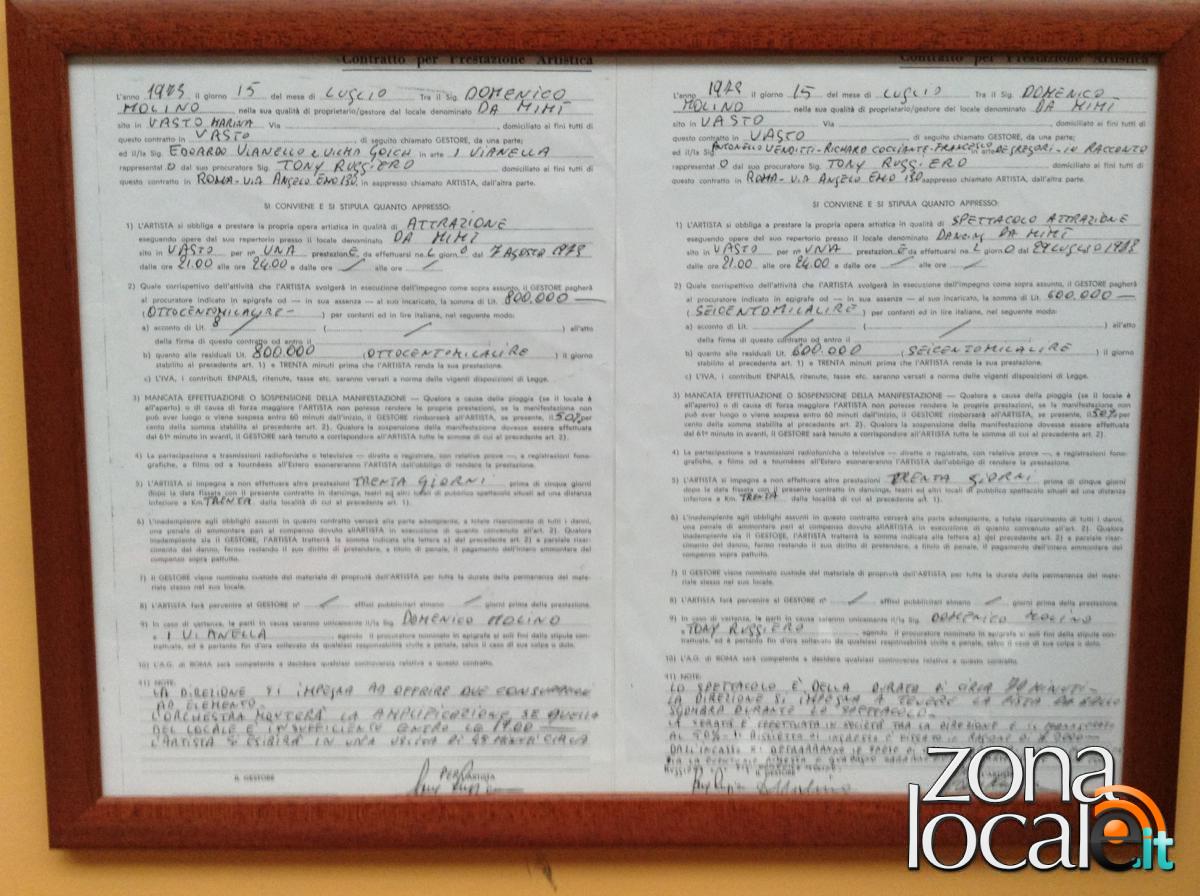 Contratto per Prestazione Artistica
L'anno 1973 il giorno 15 del mese di LUGLIO Tra il Sig. DOMENICO
MOLINO nella sua qualità di proprietario/gestore del locale denominato DA MIMÌ
sito in VASTO MARINA Via , domiciliato ai fini tutti di
questo contratto in VASTO di seguito chiamato GESTORE, da una parte;
ed il/la Sig. EDOARDO VIANELLO e VILMA GOICH in arte I VIANELLA
rappresentat O dal suo procuratore Sig. TONY RUGGIERO domiciliato ai fini tutti di
questo contratto in ROMA - VIA ANGELO EMO 130, in sappresso chiamato ARTISTA, dall'altra parte.
SI CONVIENE E SI STIPULA QUANTO APPRESSO:
1) L'ARTISTA si obbliga a prestare la propria opera artistica in qualità di ATTRAZIONE
eseguendo opere del suo repertorio presso il locale denominato DA MIMÌ
sito in VASTO per n° UNA prestazion E da effettuarsi ne L giorn O dal 7 AGOSTO 1973
dalle ore 21.00 alle ore 24.00 e dalle ore alle ore
2) Quale corrispettivo dell'attività che l'ARTISTA svolgerà in esecuzione dell'impegno come sopra assunto, il GESTORE pagherà
al procuratore indicato in epigrafe od — in sua assenza — al suo incaricato, la somma di Lit. 800.000
(OTTOCENTOMILALIRE-) per contanti ed in lire italiane, nel seguente modo:
a) acconto di Lit. ( ) all'atto
della firma di questo contratto od entro il
b) quanto alle residuali Lit. 800.000 (OTTOCENTOMILALIRE) il giorno
stabilito al precedente art. 1) e TRENTA minuti prima che l'ARTISTA renda la sua prestazione.
c) L'IVA, i contributi ENPALS, ritenute, tasse etc. saranno versati a norma delle viganti disposizioni di Legge.
3) MANCATA EFFETTUAZIONE O SOSPENSIONE DELLA MANIFESTAZIONE — Qualora a causa della pioggia (se il locale è
all'aperto) o di causa di forza maggiore l'ARTISTA non potesse rendere le proprie prestazioni, se la manifestazione non
può aver luogo o viene sospesa entro 60 minuti dall'inizio, il GESTORE rimborserà all'ARTISTA, se presente, il 50% per
cento della somma stabilita al precedente art. 2). Qualora la sospensione della manifestazione dovesse essere effettuata
dal 61° minuto in avanti, il GESTORE sarà tenuto a corrispondere all'ARTISTA tutte le somme di cui al precedente art. 2).
4) La partecipazione a trasmissioni radiofoniche o televisive — dirette o registrate, con relative prove —, a registrazioni fono-
grafiche, a films od a tournées all'Estero esonereranno l'ARTISTA dall'obbligo di rendere la prestazione.
5) L'ARTISTA si impegna a non effettuare altre prestazioni TRENTA GIORNI prima di cinque giorni
dopo la data fissata con il presente contratto in dancings, teatri ed altri locali di pubblico spettacolo situati ad una distanza
inferiore a Km. TRENTA dalla località di cui al precedente art. 1).
6) L'inadempiente agli obblighi assunti in questo contratto verserà alla parte adempiente, a totale risarcimento di tutti i danni,
una penale di ammontare pari al compenso dovuto all'ARTISTA in esecuzione di quanto convenuto all'art. 2). Qualora
inadempiente sia il GESTORE, l'ARTISTA tratterrà la somma indicata alla lettera a) del precedente art. 2) a parziale risar-
cimento del danno, fermo restando il suo diritto di pretendere, a titolo di penale, il pagamento dell'intero ammontare del
compenso sopra pattuito.
7) Il GESTORE viene nominato custode del materiale di proprietà dell'ARTISTA per tutta la durata della permanenza del mate-
riale stesso nel suo locale.
8) L'ARTISTA farà pervenire al GESTORE n° affissi pubblicitari almeno giorni prima della prestazione.
9) In caso di vertenze, le parti in causa saranno unicamente il/la Sig. DOMENICO MOLINO
e I VIANELLA agendo il procuratore nominato in epigrafe ai soli fini della stipula con-
trattuale, ed è pertanto fin d'ora sollevato da qualsiasi responsabilità civile e penale, salvo il caso di sua colpa o dolo.
10) L'A.G. di ROMA sarà competente a decidere qualsiasi controversia relativa a questo contratto.
11) NOTE:
LA DIREZIONE SI IMPEGNA AD OFFRIRE DUE CONSUMAZ.
AD ELEMENTO.
L'ORCHESTRA MONTERÀ LA AMPLIFICAZIONE SE QUELLA
DEL LOCALE È INSUFFICIENTE ENTRO LE 19.00
L'ARTISTA SI ESIBIRÀ IN UNA USCITA DI 45 MINUTI CIRCA
IL GESTORE PER L'ARTISTA
Contratto per Prestazione Artistica
L'anno 1973 il giorno 15 del mese di LUGLIO Tra il Sig. DOMENICO
MOLINO nella sua qualità di proprietario/gestore del locale denominato DA MIMÌ
sito in VASTO Via , domiciliato ai fini tutti di
questo contratto in VASTO di seguito chiamato GESTORE, da una parte;
ed il/la Sig. ANTONELLO VENDITTI - RICHARD COCCIANTE - FRANCESCO DE GREGORI - in arte IN RACCONTO
rappresentat O dal suo procuratore Sig. TONY RUGGIERO domiciliato ai fini tutti di
questo contratto in ROMA - VIA ANGELO EMO 130 sappresso chiamato ARTISTA, dall'altra parte.
SI CONVIENE E SI STIPULA QUANTO APPRESSO:
1) L'ARTISTA si obbliga a prestare la propria opera artistica in qualità di SPETTACOLO ATTRAZIONE
eseguendo opere del suo repertorio presso il locale denominato DANCING DA MIMÌ
sito in VASTO per n° UNA prestazion E da effettuarsi ne L giorn O dal 29 LUGLIO 1973
dalle ore 21.00 alle ore 24.00 e dalle ore alle ore
2) Quale corrispettivo dell'attività che l'ARTISTA svolgerà in esecuzione dell'impegno come sopra assunto, il GESTORE pagherà
al procuratore indicato in epigrafe od — in sua assenza — al suo incaricato, la somma di Lit. 600.000
(SEICENTOMILALIRE) per contanti ed in lire italiane, nel seguente modo:
a) acconto di Lit. ( ) all'atto
della firma di questo contratto od entro il
b) quanto alle residuali Lit. 600.000 (SEICENTOMILALIRE) il giorno
stabilito al precedente art. 1) e TRENTA minuti prima che l'ARTISTA renda la sua prestazione.
c) L'IVA, i contributi ENPALS, ritenute, tasse etc. saranno versati a norma delle viganti disposizioni di Legge.
3) MANCATA EFFETTUAZIONE O SOSPENSIONE DELLA MANIFESTAZIONE — Qualora a causa della pioggia (se il locale è
all'aperto) o di causa di forza maggiore l'ARTISTA non potesse rendere le proprie prestazioni, se la manifestazione non
può aver luogo o viene sospesa entro 60 minuti dall'inizio, il GESTORE rimborserà all'ARTISTA, se presente, il 50% per
cento della somma stabilita al precedente art. 2). Qualora la sospensione della manifestazione dovesse essere effettuata
dal 61° minuto in avanti, il GESTORE sarà tenuto a corrispondere all'ARTISTA tutte le somme di cui al precedente art. 2).
4) La partecipazione a trasmissioni radiofoniche o televisive — dirette o registrate, con relative prove —, a registrazioni fono-
grafiche, a films od a tournées all'Estero esonereranno l'ARTISTA dall'obbligo di rendere la prestazione.
5) L'ARTISTA si impegna a non effettuare altre prestazioni TRENTA GIORNI prima di cinque giorni
dopo la data fissata con il presente contratto in dancings, teatri ed altri locali di pubblico spettacolo situati ad una distanza
inferiore a Km. TRENTA dalla località di cui al precedente art. 1).
6) L'inadempiente agli obblighi assunti in questo contratto verserà alla parte adempiente, a totale risarcimento di tutti i danni,
una penale di ammontare pari al compenso dovuto all'ARTISTA in esecuzione di quanto convenuto all'art. 2). Qualora
inadempiente sia il GESTORE, l'ARTISTA tratterrà la somma indicata alla lettera a) del precedente art. 2) a parziale risar-
cimento del danno, fermo restando il suo diritto di pretendere, a titolo di penale, il pagamento dell'intero ammontare del
compenso sopra pattuito.
7) Il GESTORE viene nominato custode del materiale di proprietà dell'ARTISTA per tutta la durata della permanenza del mate-
riale stesso nel suo locale.
8) L'ARTISTA farà pervenire al GESTORE n° affissi pubblicitari almeno giorni prima della prestazione.
9) In caso di vertenze, le parti in causa saranno unicamente il/la Sig. DOMENICO MOLINO
e TONY RUGGIERO agendo il procuratore nominato in epigrafe ai soli fini della stipula con-
trattuale, ed è pertanto fin d'ora sollevato da qualsiasi responsabilità civile e penale, salvo il caso di sua colpa o dolo.
10) L'A.G. di ROMA sarà competente a decidere qualsiasi controversia relativa a questo contratto.
11) NOTE:
LO SPETTACOLO È DELLA DURATA DI CIRCA 70 MINUTI-
LA DIREZIONE SI IMPEGNA A TENERE LA PISTA DA BALLO
SGOMBRA DURANTE LO SPETTACOLO.
LA SERATA È EFFETTUATA IN SOCIETÀ TRA LA DIREZIONE E
AL 50% - IL BIGLIETTO DI INGRESSO È FISSATO IN RAGIONE DI
DALL'INCASSO SI DETRARRANNO LE SPESE DI
IL GESTORE L'ARTISTA
zona
locale.it